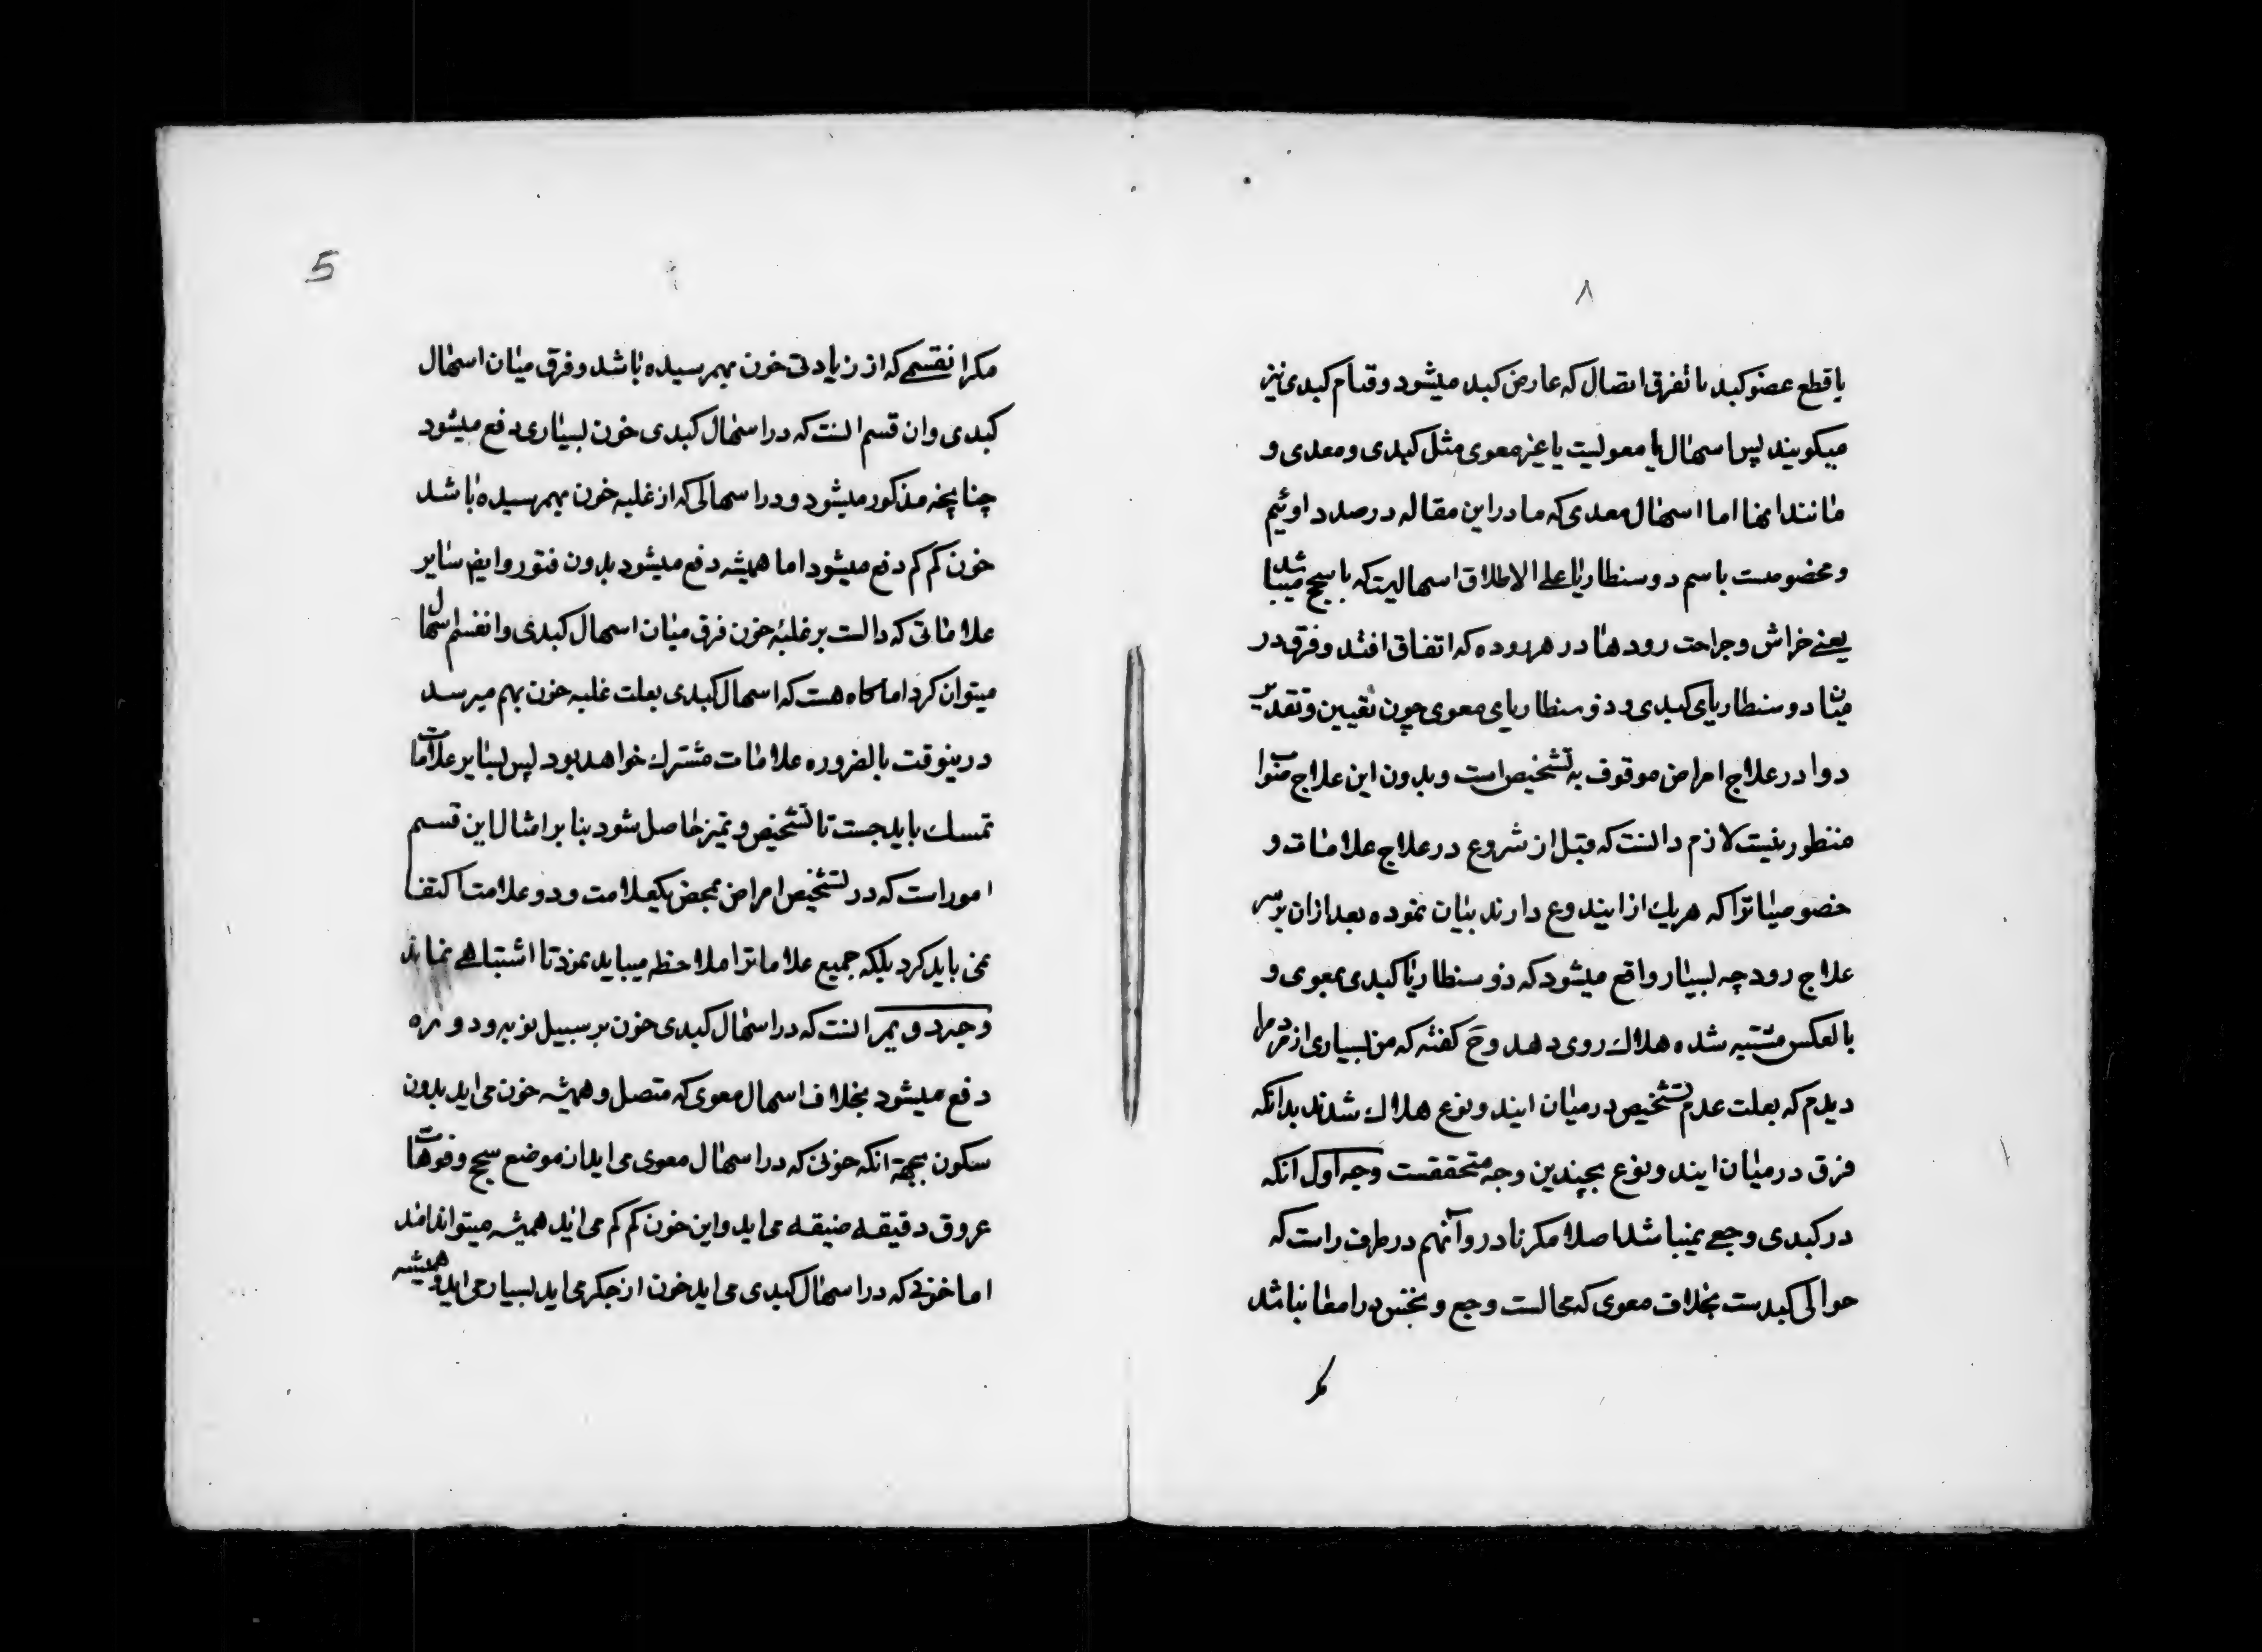 ۸
یا قطع عضو کبد یا تفرق اتصال که عارض کبد میشود و قیام کبدی نیز
میکویند پس اسهال یا معویست یا غیر معوی مثل کبدی و معدی و
مانند اینها اما اسهال معدی که ما در این مقاله در صدد اوئیم
و مخصوصست باسم دوسنطاریا علی الاطلاق اسهالیت که با سحج میباشد
یعنے خراش و جراحت رودها در هر روده که اتفاق افتد و فرق در
میان دوسنطاریای کبدی و ذوسنطاریای معوی چون تعیین و تقدیر
دوا در علاج امراض موقوف به تشخیص است و بدون این علاج صواب
منظور نیست لازم دانست که قبل از شروع در علاج علامات و
خصوصیاترا که هریك از ایندو نوع دارند بیان نموده بعد ازان برسر
علاج رود چه بسیار واقع میشود که ذوسنطاریا کبدی بمعوی و
بالعکس مشتبه شده هلاك روی دهد و ج کفته که من بسیاری از مردم را
دیدم که بعلت عدم تشخیص درمیان ایندو نوع هلاك شدند بدانکه
فرق درمیان ایندو نوع بچندین وجه متحققست وجه اول آنکه
در کبدی وجعے نمیباشد اصلا مکر نادر و آنهم در طرف راست که
حوالی کبدست بخلاف معوی که محالست وجع و نخس در امعا نباشد
مکر
5
مکر انقسمے که از زیادتی خون بهمرسیده باشد و فرق میان اسهال
کبدی و ان قسم انست که در اسهال کبدی خون بسیاری دفع میشود
چنانچه مذکور میشود و در اسهالی که از غلبه خون بهمرسیده باشد
خون کم کم دفع میشود اما همیشه دفع میشود بدون فتور و ایض سایر
علاماتی که دالست بر غلبه خون فرق میان اسهال کبدی و انقسم اسهال
میتوان کرد اما کاه هست که اسهال کبدی بعلت غلبه خون بهم میرسد
در ینوقت بالضروره علامات مشترك خواهد بود پس بسایر علامات
تمسك باید جست تا تشخیص و تمیز حاصل شود بنا بر امثال این قسم
امور است که در تشخیص امراض بمحض یکعلامت و دو علامت اکتفا
نمی باید کرد بلکه جمیع علاماترا ملاحظه میباید نمود تا اشتباهے نماند
وجه دویم انست که در اسهال کبدی خون بر سبیل نوبه و دوره
دفع میشود بخلاف اسهال معوی که متصل و همیشه خون می اید بدون
سکون بجهة آنکه خونی که در اسهال معوی می اید از موضع سحج و فوهات
عروق دقیقه ضیقه می اید و این خون کم کم می اید همیشه میتواند امد
اما خونی که در اسهال کبدی می اید خون از جکر می اید بسیار می اید و همیشه